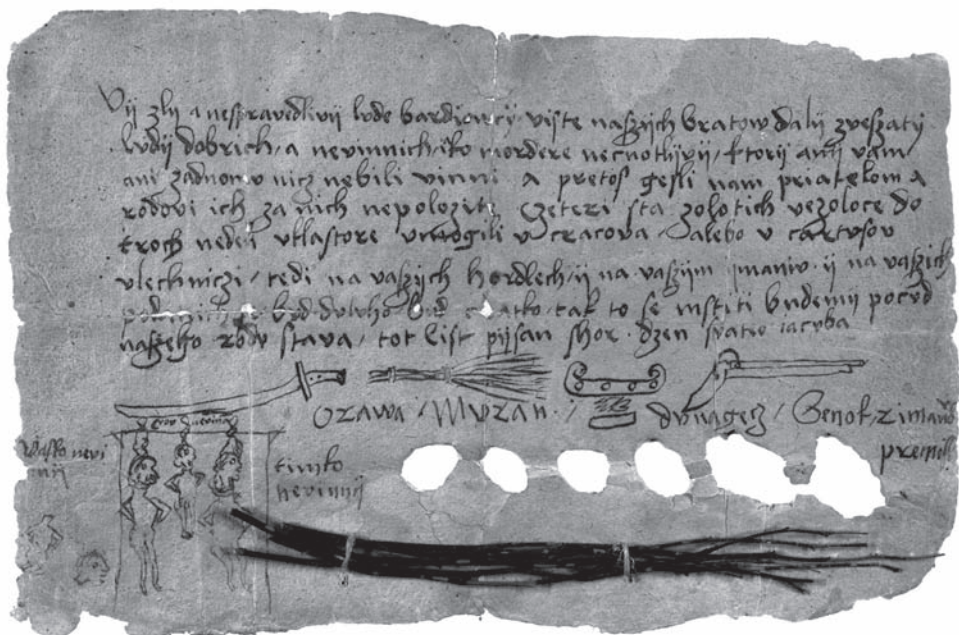 Vij zlii a nespravedlivij lvde bardiowcy, viste naßzijch bratow dalij zveßzatij
lvdij dobrich, a nevinnich, iko mordere necnotlijvij, ktorij anij vam
ani żadnomv nicz nebili vinni A pretoß geßli nam priatelom a
rodovi ich za nich nepolozite czeteri sta zolotich vezoloce do
troch nedeli v klastore v mogili v cracova, Dalebo v cartvsov
vlechniczi, tedi na vaßzijch hordlech, ij na vaßzijm imaniv ij na vaßzich
bvd dvlho bvd cratko, tak to se mstiti bvdemij pocvd
naßzeho rodv stava, tot list pijsan shor dzen svateo iacvba
Orawa, Mvran, dvnagecz, Senok, Rimanow
Waßko nevi
nnij
timko
nevinnij